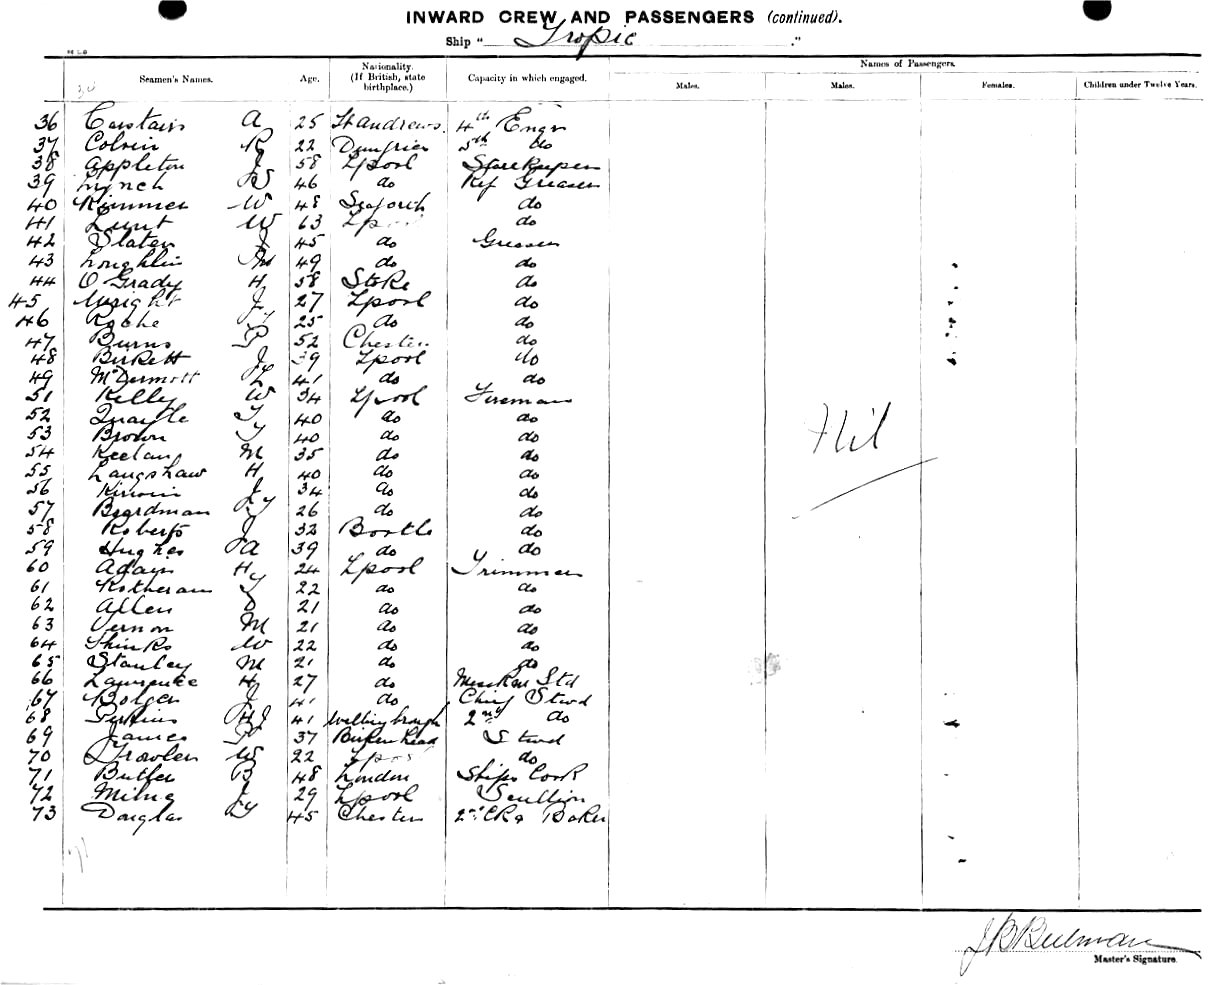 INWARD CREW AND PASSENGERS (continued).
Ship " Tropic ."
Seamen's Names. Age. Nationality. (If British, state birthplace.) Capacity in which engaged. Names of Passengers.
Males. Males. Females. Children under Twelve Years.
36 Carstairs A 25 St andrews 4th Engr
37 Colvin R 22 Dumfries 5th do
38 Appleton J 58 Lpool Storekeeper
39 Lynch 46 do Ref Greaser
40 Rimmer W 48 Seaforth do
41 Lunt W 63 Lpool do
42 Slater J 45 do Greaser
43 Loughlin M 49 do do
44 O Grady H 58 Stoke do
45 Wright J 27 Lpool do
46 Roche 25 do do
47 Burns P 52 Chester do
48 Birkett J 39 Lpool do
49 McDermott 41 do do
51 Kelly W 34 Lpool Fireman
52 Quayle T 40 do do
53 Brown T 40 do do
54 Keelan M 35 do do
55 Langshaw H 40 do do
56 Kirwin J 34 do do
57 Boardman 26 do do
58 Roberts J 32 Bootle do
59 Hughes JA 39 do do
60 Adam Hy 24 Lpool Trimmer
61 Rotheram T 22 do do
62 Allen D 21 do do
63 Vernon M 21 do do
64 Shinks W 22 do do
65 Stanley M 21 do do
66 Lawrence H 27 do MessRm Std
67 Bolger J 41 do Chief Stwd
68 Perkins HJ 41 Wellingbrough 2nd do
69 James P 37 Birkenhead Stwd
70 W 22 Lpool do
71 Butler B 48 London Ships Cook
72 Milne J 29 Lpool Scullion
73 Douglas 45 Chester 2nd Ck & Baker
Nil
Master's Signature.